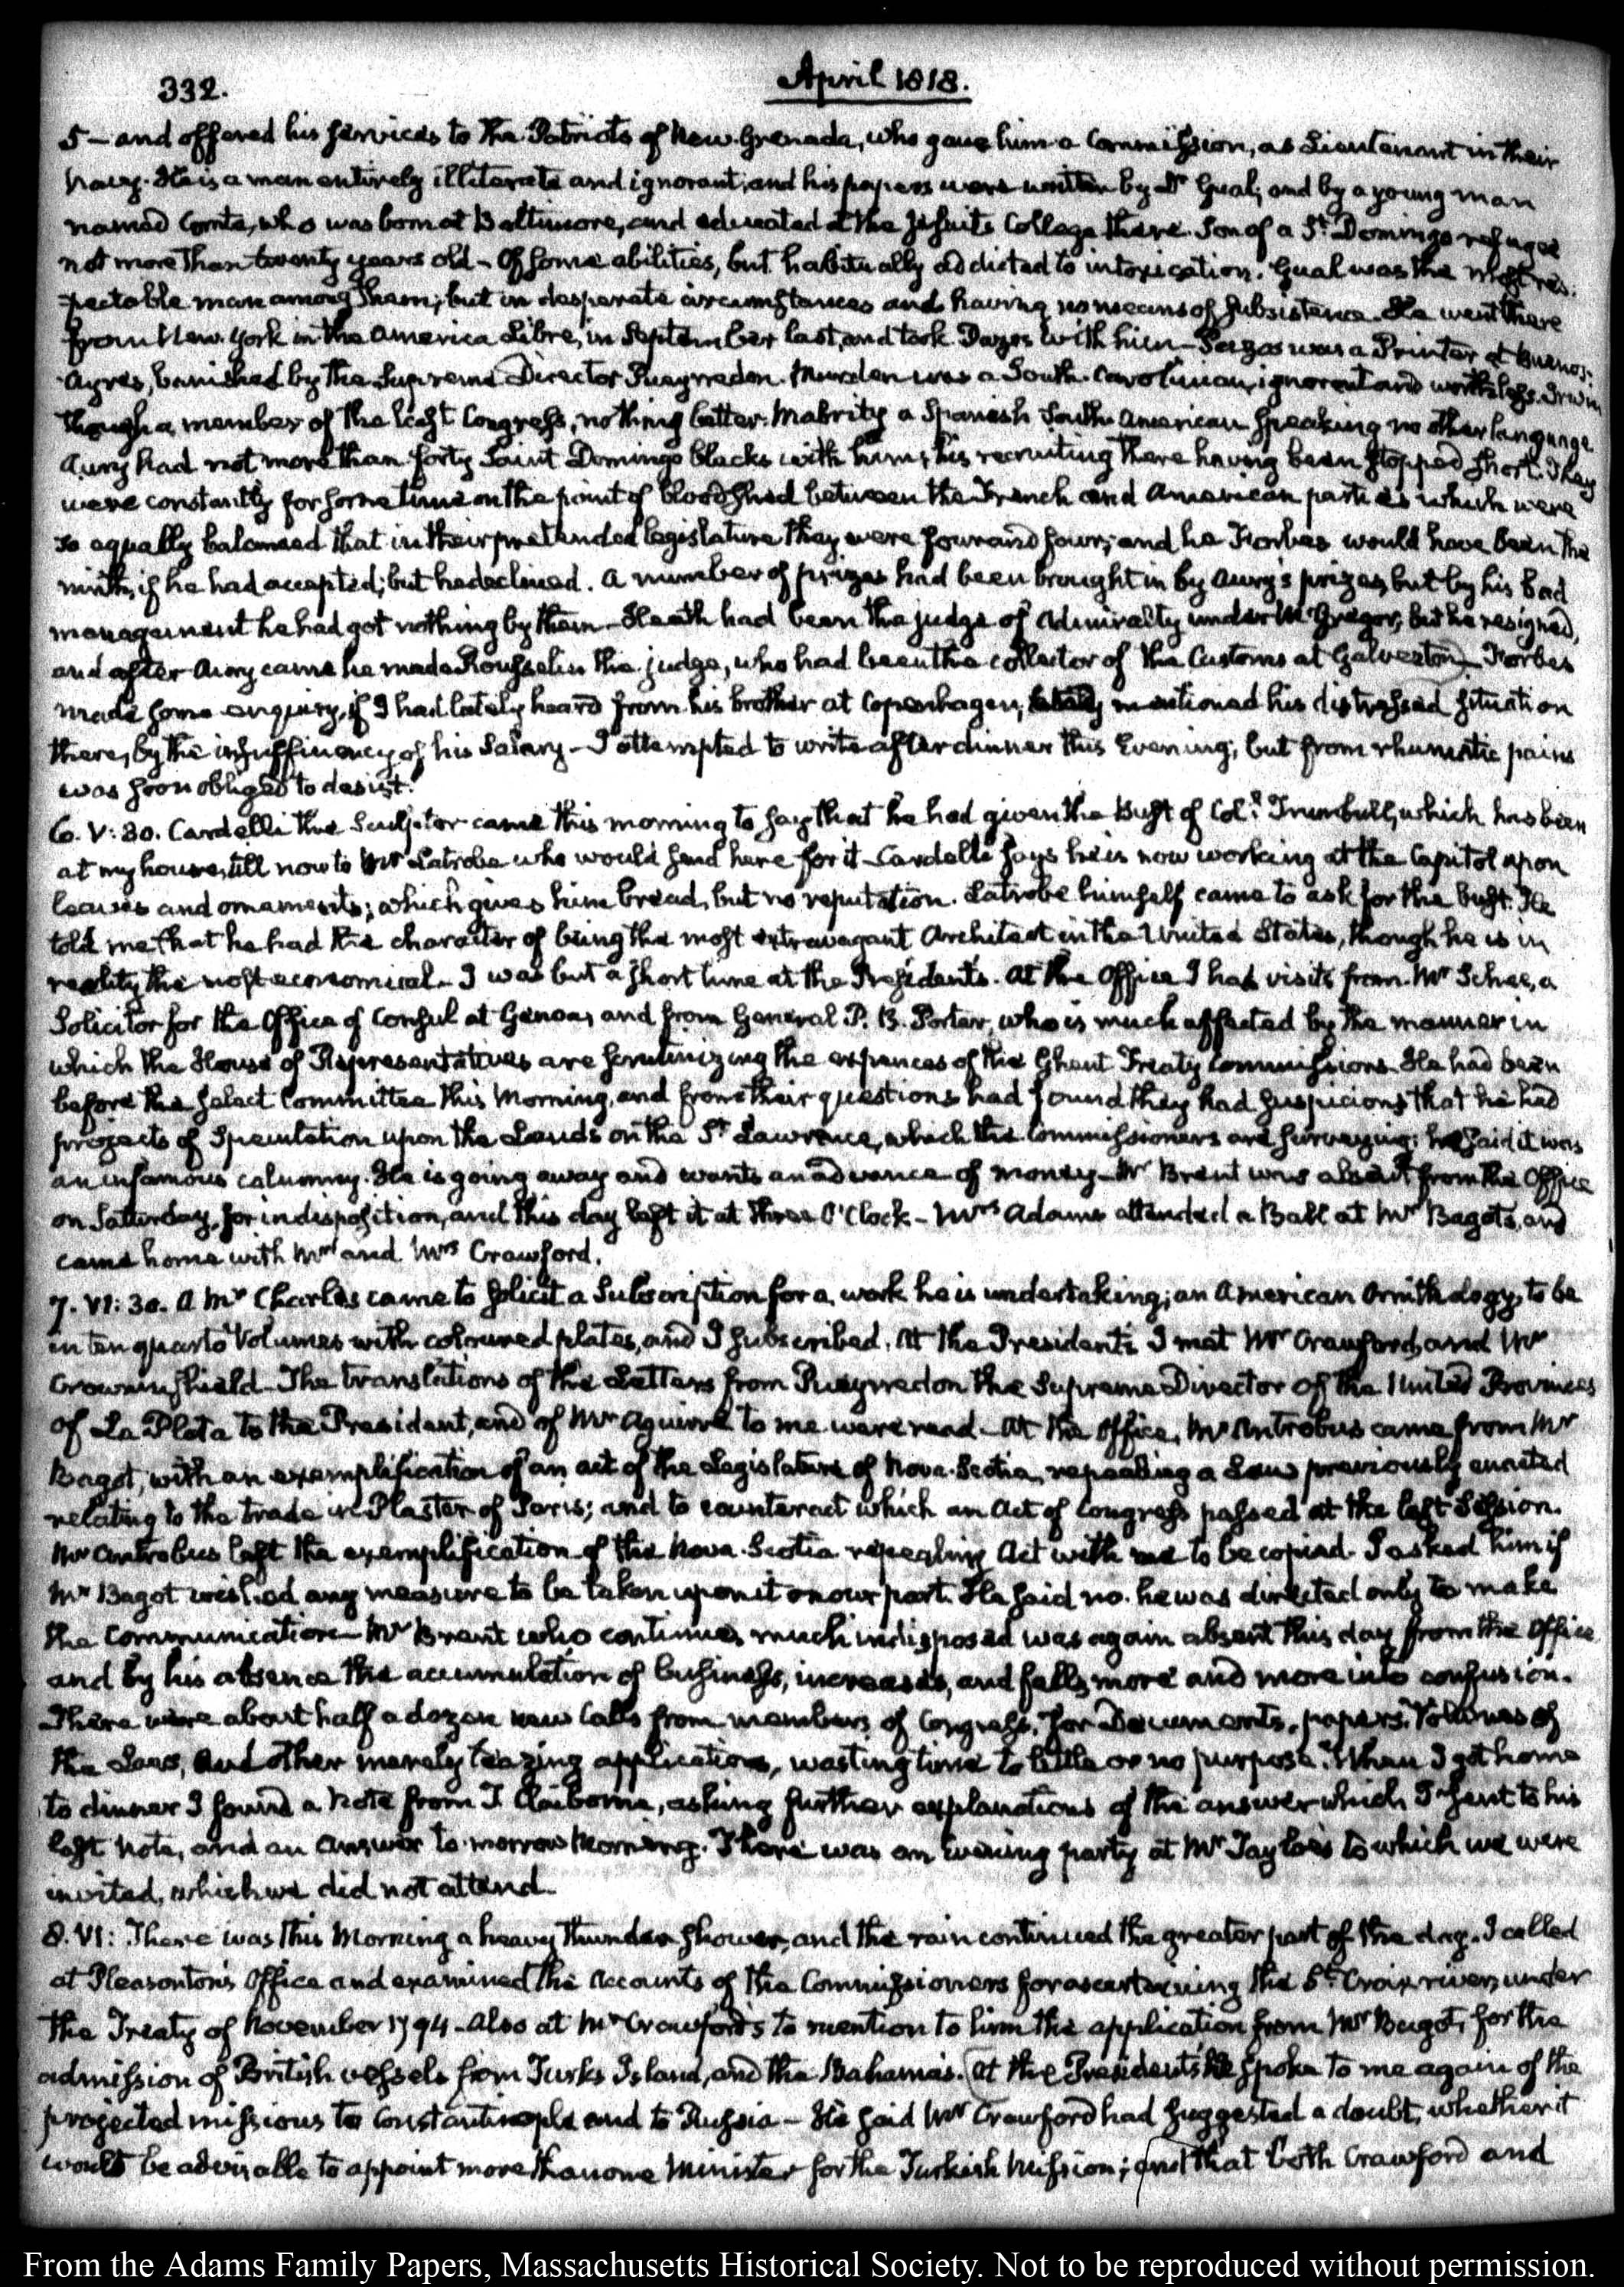 332.
April 1818.
5 - and offered his services to the Patriots of New-Grenada, who gave him a Commission, as Lieutenant in their
Navy. He is a man entirely illiterate and ignorant; and his papers were written by Dr Gual, and by a young man
named Comte, who was born at Baltimore, and educated at the Jesuits College there. Son of a St. Domingo refugee
not more than twenty years old - Of some abilities, but habitually addicted to intoxication. Gual was the most res-
pectable man among them; but in desperate circumstances and having no means of subsistence. He went there
from New-York in the America Libre, in September last, and took Pazos with him - Pazos was a Printer at Buenos-
Ayres, banished by the Supreme Director Pueyrredon. Murden was a South-Carolinian, ignorant and worthless. Irwin
though a member of the last Congress, nothing better. Mabrity a Spanish South-American speaking no other language.
Aury had not more than forty Saint Domingo blacks with him, his recruiting there having been stopped short. They
were constantly for some time on the point of bloodshed between the French and American parties which were
so equally balanced that in their pretended legislature they were four and four; and he Forbes would have been the
ninth, if he had accepted; but he declined. A number of prizes had been brought in by Aury's prizes, but by his bad
management he had got nothing by them - Heath had been the judge of Admiralty under McGregor, but he resigned,
and after Aury came he made Rousselin the judge, who had been the collector of the Customs at Galveston - Forbes
made some enquiry, if I had lately heard from his brother at Copenhagen, mentioned his distressed situation
there, by the insufficiency of his Salary - I attempted to write after dinner this Evening; but from rhumatic pains
was soon obliged to desist.
6. V:30. Cardelli the Sculptor came this morning to say that he had given the Bust of Coll. Trumbull, which has been
at my house, till now to Mr Latrobe who would send here for it - Cardelli says he is now working at the Capitol upon
leaves and ornaments; which gives him bread, but no reputation. Latrobe himself came to ask for the bust. He
told me that he had the character of being the most extravagant Architect in the United States, though he is in
reality the most economical - I was but a short time at the President's. At the Office I had visits from Mr Schee, a
Solicitor for the Office of Consul at Genoa, and from General P. B. Porter, who is much affected by the manner in
which the House of Representatives are scrutinizing the expences of the Ghent Treaty Commissions. He had been
before the select Committee this Morning, and from their questions had found they had suspicions that he had
projects of Speculation upon the Lands on the St Lawrence, which the Commissioners are surveying; he said it was
an infamous calumny. He is going away and wants an advance of money - Mr Brent was absent from the Office
on Satturday, for indisposition, and this day left it at three O'Clock - Mrs Adams attended a Ball at Mr Bagot's, and
came home with Mr and Mrs Crawford.
7. VI:30. A Mr Charles came to solicit a Subscription for a work he is undertaking; an American Ornithology, to be
in ten quarto Volumes with coloured plates, and I subscribed. At the Presidents I met Mr Crawford, and Mr
Crowninshield - The translations of the Letters from Pueyrredon the Supreme Director of the United Provinces
of La Plata to the President, and of Mr Aguirre to me were read - At the Office, Mr Antrobus came from Mr
Bagot, with an exemplification of an act of the Legislature of Nova-Scotia, repealing a Law previously enacted
relating to the trade in Plaster of Paris; and to counteract which an Act of Congress passed at the last Session.
Mr Antrobus left the exemplification of the Nova-Scotia repealing Act with me to be copied. I asked him if
Mr Bagot wished any measure to be taken upon it on our part. He said no. he was directed only to make
the communication - Mr Brent who continues much indisposed was again absent this day from the Office
and by his absence the accumulation of business, increases, and falls more and more into confusion.
There were about half a dozen new Calls from members of Congress, for Documents, papers, Volumes of
the Laws, and other merely teazing applications, wasting time to little or no purpose. When I got home
to dinner I found a Note from T. Claiborne, asking further explanations of the answer which I sent to his
last Note, and an answer to-morrow Morning. There was an evening party at Mr Tayloe's to which we were
invited, which we did not attend.
8. VI: There was this Morning a heavy thunder shower, and the rain continued the greater part of the day. I called
at Pleasonton's Office and examined the Accounts of the Commissioners for ascertaining the St. Croix river, under
the Treaty of November 1794 - Also at Mr Crawford's to mention to him the application from Mr Bagot, for the
admission of British vessels from Turks Island, and the Bahamas. At the President's he spoke to me again of the
projected missions to Constantinople and to Russia - He said Mr Crawford had suggested a doubt, whether it
would be advisable to appoint more than one Minister for the Turkish Mission; and that both Crawford and
From the Adams Family Papers, Massachusetts Historical Society. Not to be reproduced without permission.